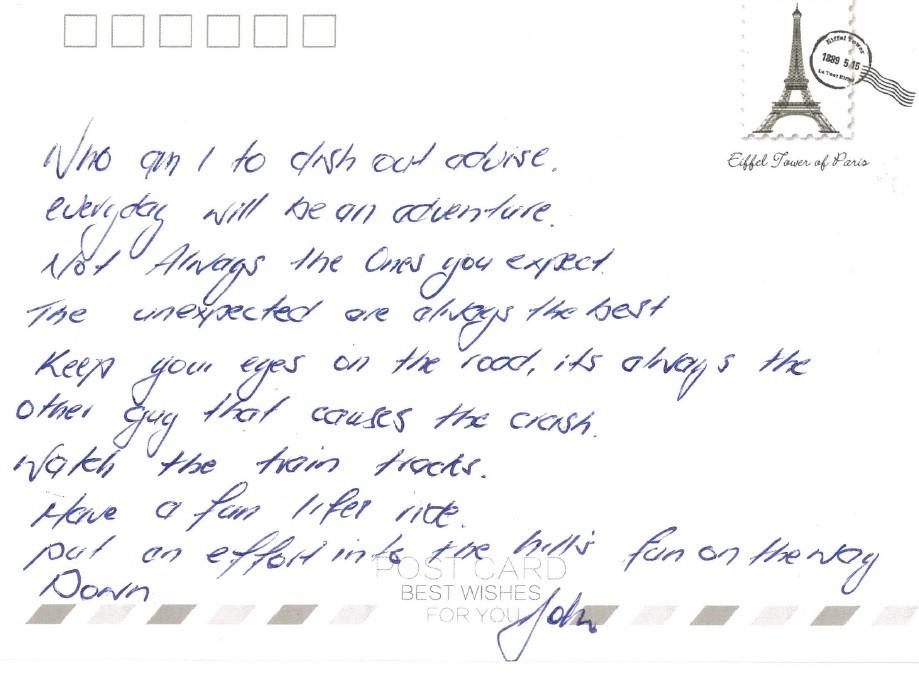 Eiffel Tower
1889 5.15
La Tour Eiffel
Eiffel Tower of Paris
Who am I to dish out advise.
everyday will be an adventure.
Not Always the Ones you expect.
The unexpected are always the best
Keep your eyes on the road, its always the
other guy that causes the crash.
Watch the train tracks.
Have a fun lifes ride.
put an effort into the hills fun on the way
Down
John
POST CARD
BEST WISHES
FOR YOU